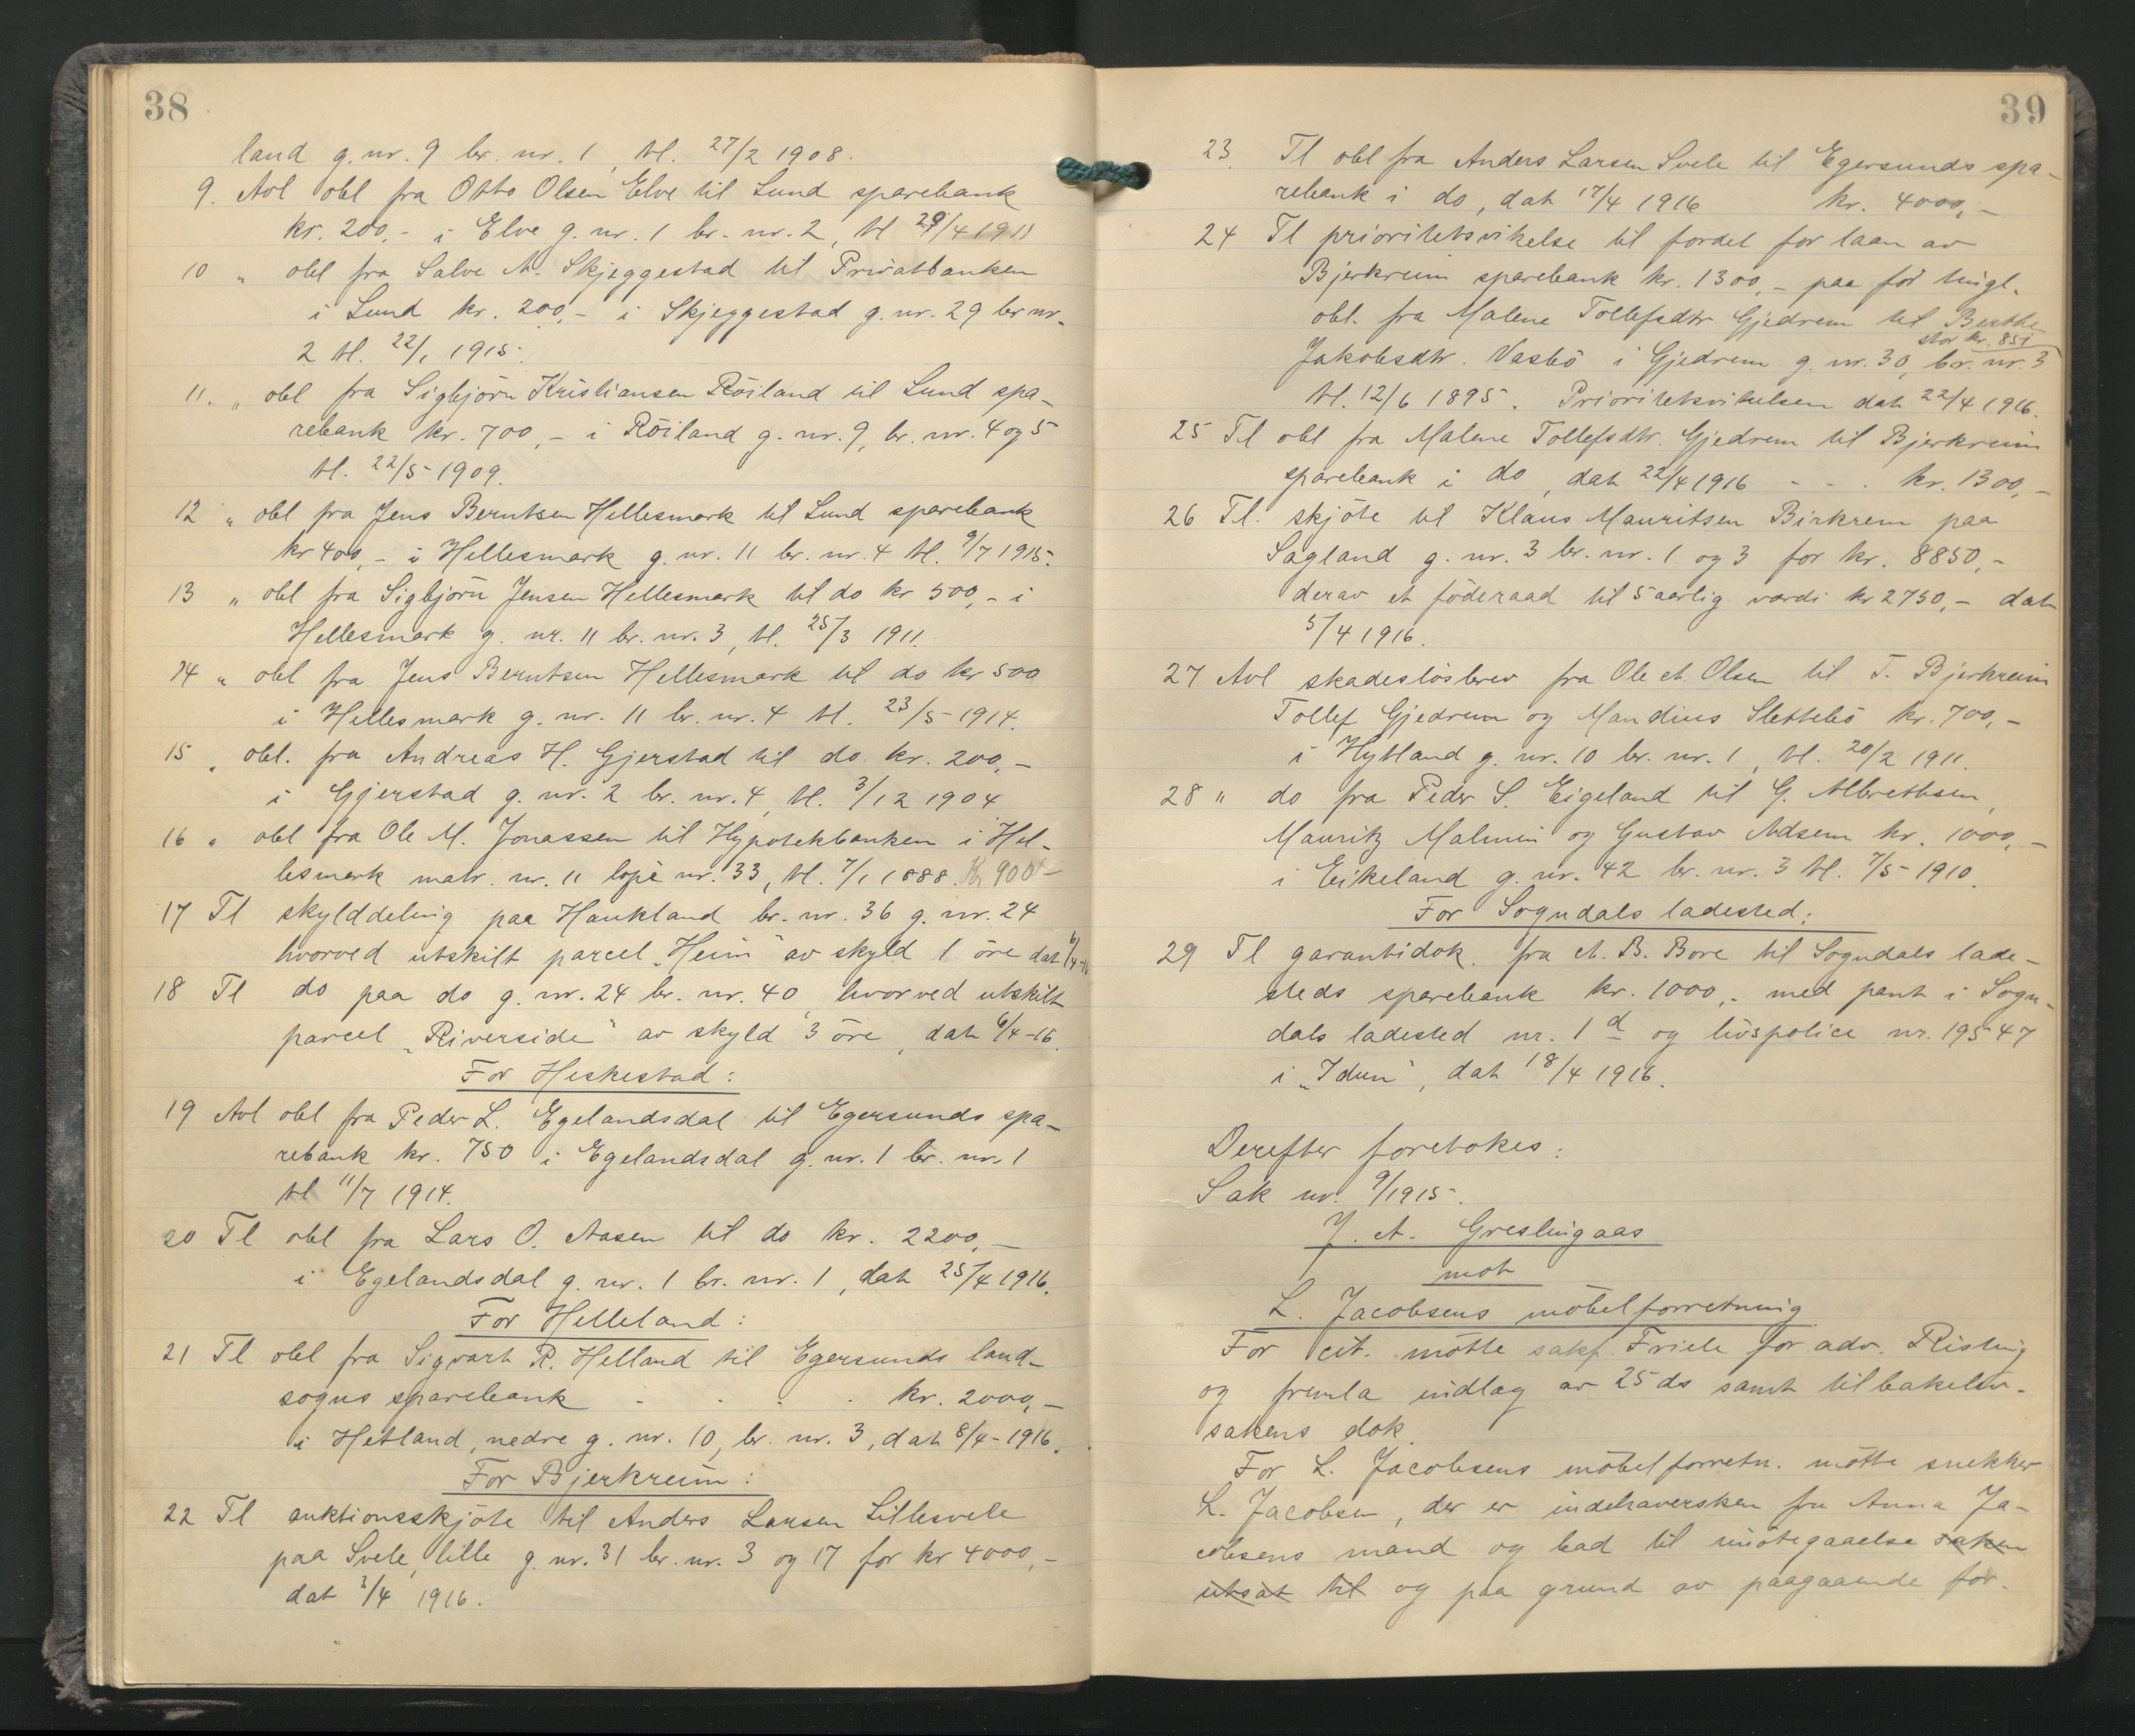 38
land g. nr. 9 br. nr. 1, tl. 27/2 1908.
9. Avl obl fra Otto Olsen Elve til Lund sparebank
kr. 200,- i Elve g. nr. 1 br. nr. 2, tl 29/4 1911
10 „ obl fra Salve A. Skjeggestad til Privatbanken
i Lund kr. 200,- i Skjeggestad g. nr. 29 br nr.
2 tl. 22/1 1915.
11. „ obl fra Sigbjörn Kristiansen Röiland til Lund spa-
rebank kr. 700,- i Röiland g. nr. 9, br. nr. 4 og 5
tl. 22/5-1909.
12 „ obl fra Jens Berntsen Hellesmark til Lund sparebank
kr 400,- i Hellesmark g. nr. 11 br. nr. 4 tl. 9/7 1915.
13 „ obl fra Sigbjörn Jensen Hellesmark til do kr 500,- i
Hellesmark g. nr. 11 br. nr. 3, tl. 25/3 1911.
14 „ obl fra Jens Berntsen Hellesmark til do kr 500
i Hellesmark g. nr. 11 br. nr. 4 tl. 23/5-1914.
15 „ obl. fra Andreas H. Gjerstad til do kr. 200,-
i Gjerstad g. nr. 2 br. nr. 4, tl. 3/12 1904
16 „ obl fra Ole M. Jonassen til Hypotekbanken i Hel-
lesmark matr. nr. 11 lope nr. 33, tl. 7/1 1888. Kr 900-
17 Tl skylddeling paa Haukland br. nr. 36 g. nr. 24
hvorved utskilt parcel „Heim" av skyld 1 öre dat 6/4-16
18 Tl do paa do g. nr. 24 br. nr. 40, hvorved utskilt
parcel „Riverside" av skyld 3 öre, dat 6/4-16.
For Heskestad:
19 Avl obl fra Peder L. Egelandsdal til Egersunds spa-
rebank kr. 750 i Egelandsdal g. nr. 1 br. nr. 1
tl 11/7 1914.
20 Tl obl fra Lars O. Aasen til do kr. 2200,-
i Egelandsdal g. nr. 1 br. nr. 1, dat 25/4 1916.
For Helleland:
21 Tl obl fra Sigvart R. Helland til Egersunds land-
sogns sparebank - . . . kr. 2000,-
i Hetland, nedre g. nr. 10, br. nr. 3, dat 8/4-1916.
For Bjerkreim:
22 Tl auktionsskjöte til Anders Larsen Lillesvele
paa Svele, lille g. nr. 31 br. nr. 3 og 17 for kr 4000,-
dat 3/4 1916.
39
23 Tl obl fra Anders Larsen Svele til Egersunds spa-
rebank i do, dat 17/4 1916 kr. 4000,-
24 Tl prioritetsvikelse til fordel for laan av
Bjerkreim sparebank kr. 1300,- paa for tingl.
obl. fra Malene Tollefsdtr Gjedrem til Berthe
stor kr. 851
Jakobsdtr. Vasbö i Gjedrem g. nr. 30, br. nr. 3
tl. 12/6 1895. Prioritetsvikelsen dat 22/4 1916.
25 Tl obl fra Malene Tollefsdtr. Gjedrem til Bjerkreim
sparebank i do, dat 22/4 1916 - - . kr. 1300,-
26 Tl. skjöte til Klaus Mauritsen Birkrem paa
Sagland g. nr. 3 br. nr. 1 og 3 for kr. 8850,-
derav et föderaad til 5 aarlig værdi kr 2750,- dat
5/4 1916.
27 Avl skadeslösbrev fra Ole A. Olsen til T. Bjerkreim
Tollef Gjedrem og Mandius Slettebö kr. 700,-
i Hytland g. nr. 10 br. nr. 1, tl. 20/2 1911.
28 „ do fra Peder S. Eigeland til G. Albrethsen,
Mauritz Malmin og Gustav Adsem kr. 1000,-
i Eikeland g. nr. 42 br. nr. 3 tl. 7/5-1910.
For Sogndals ladested:
29 Tl garantidok. fra A. B. Bore til Sogndals lade-
steds sparebank kr. 1000,- med pant i Sogn-
dals ladested nr. 1 d og livspolice nr. 19547
i „Idun", dat 18/4 1916.
Derefter foretokes:
Sak nr. 9/1915.
J. A. Greslingaas
mot
L. Jacobsens möbelforretning
For cit. mötte sakf. Friele for adv. Risting
og fremla indlæg av 25 ds samt tilbakelev.
sakens dok.
For L. Jacobsens möbelforretn. mötte snekker
L. Jacobsen, der er indehaversken fru Anna Ja-
cobsens mand og bad til imötegaaelse saken
utsat til og paa grund av paagaaende for-